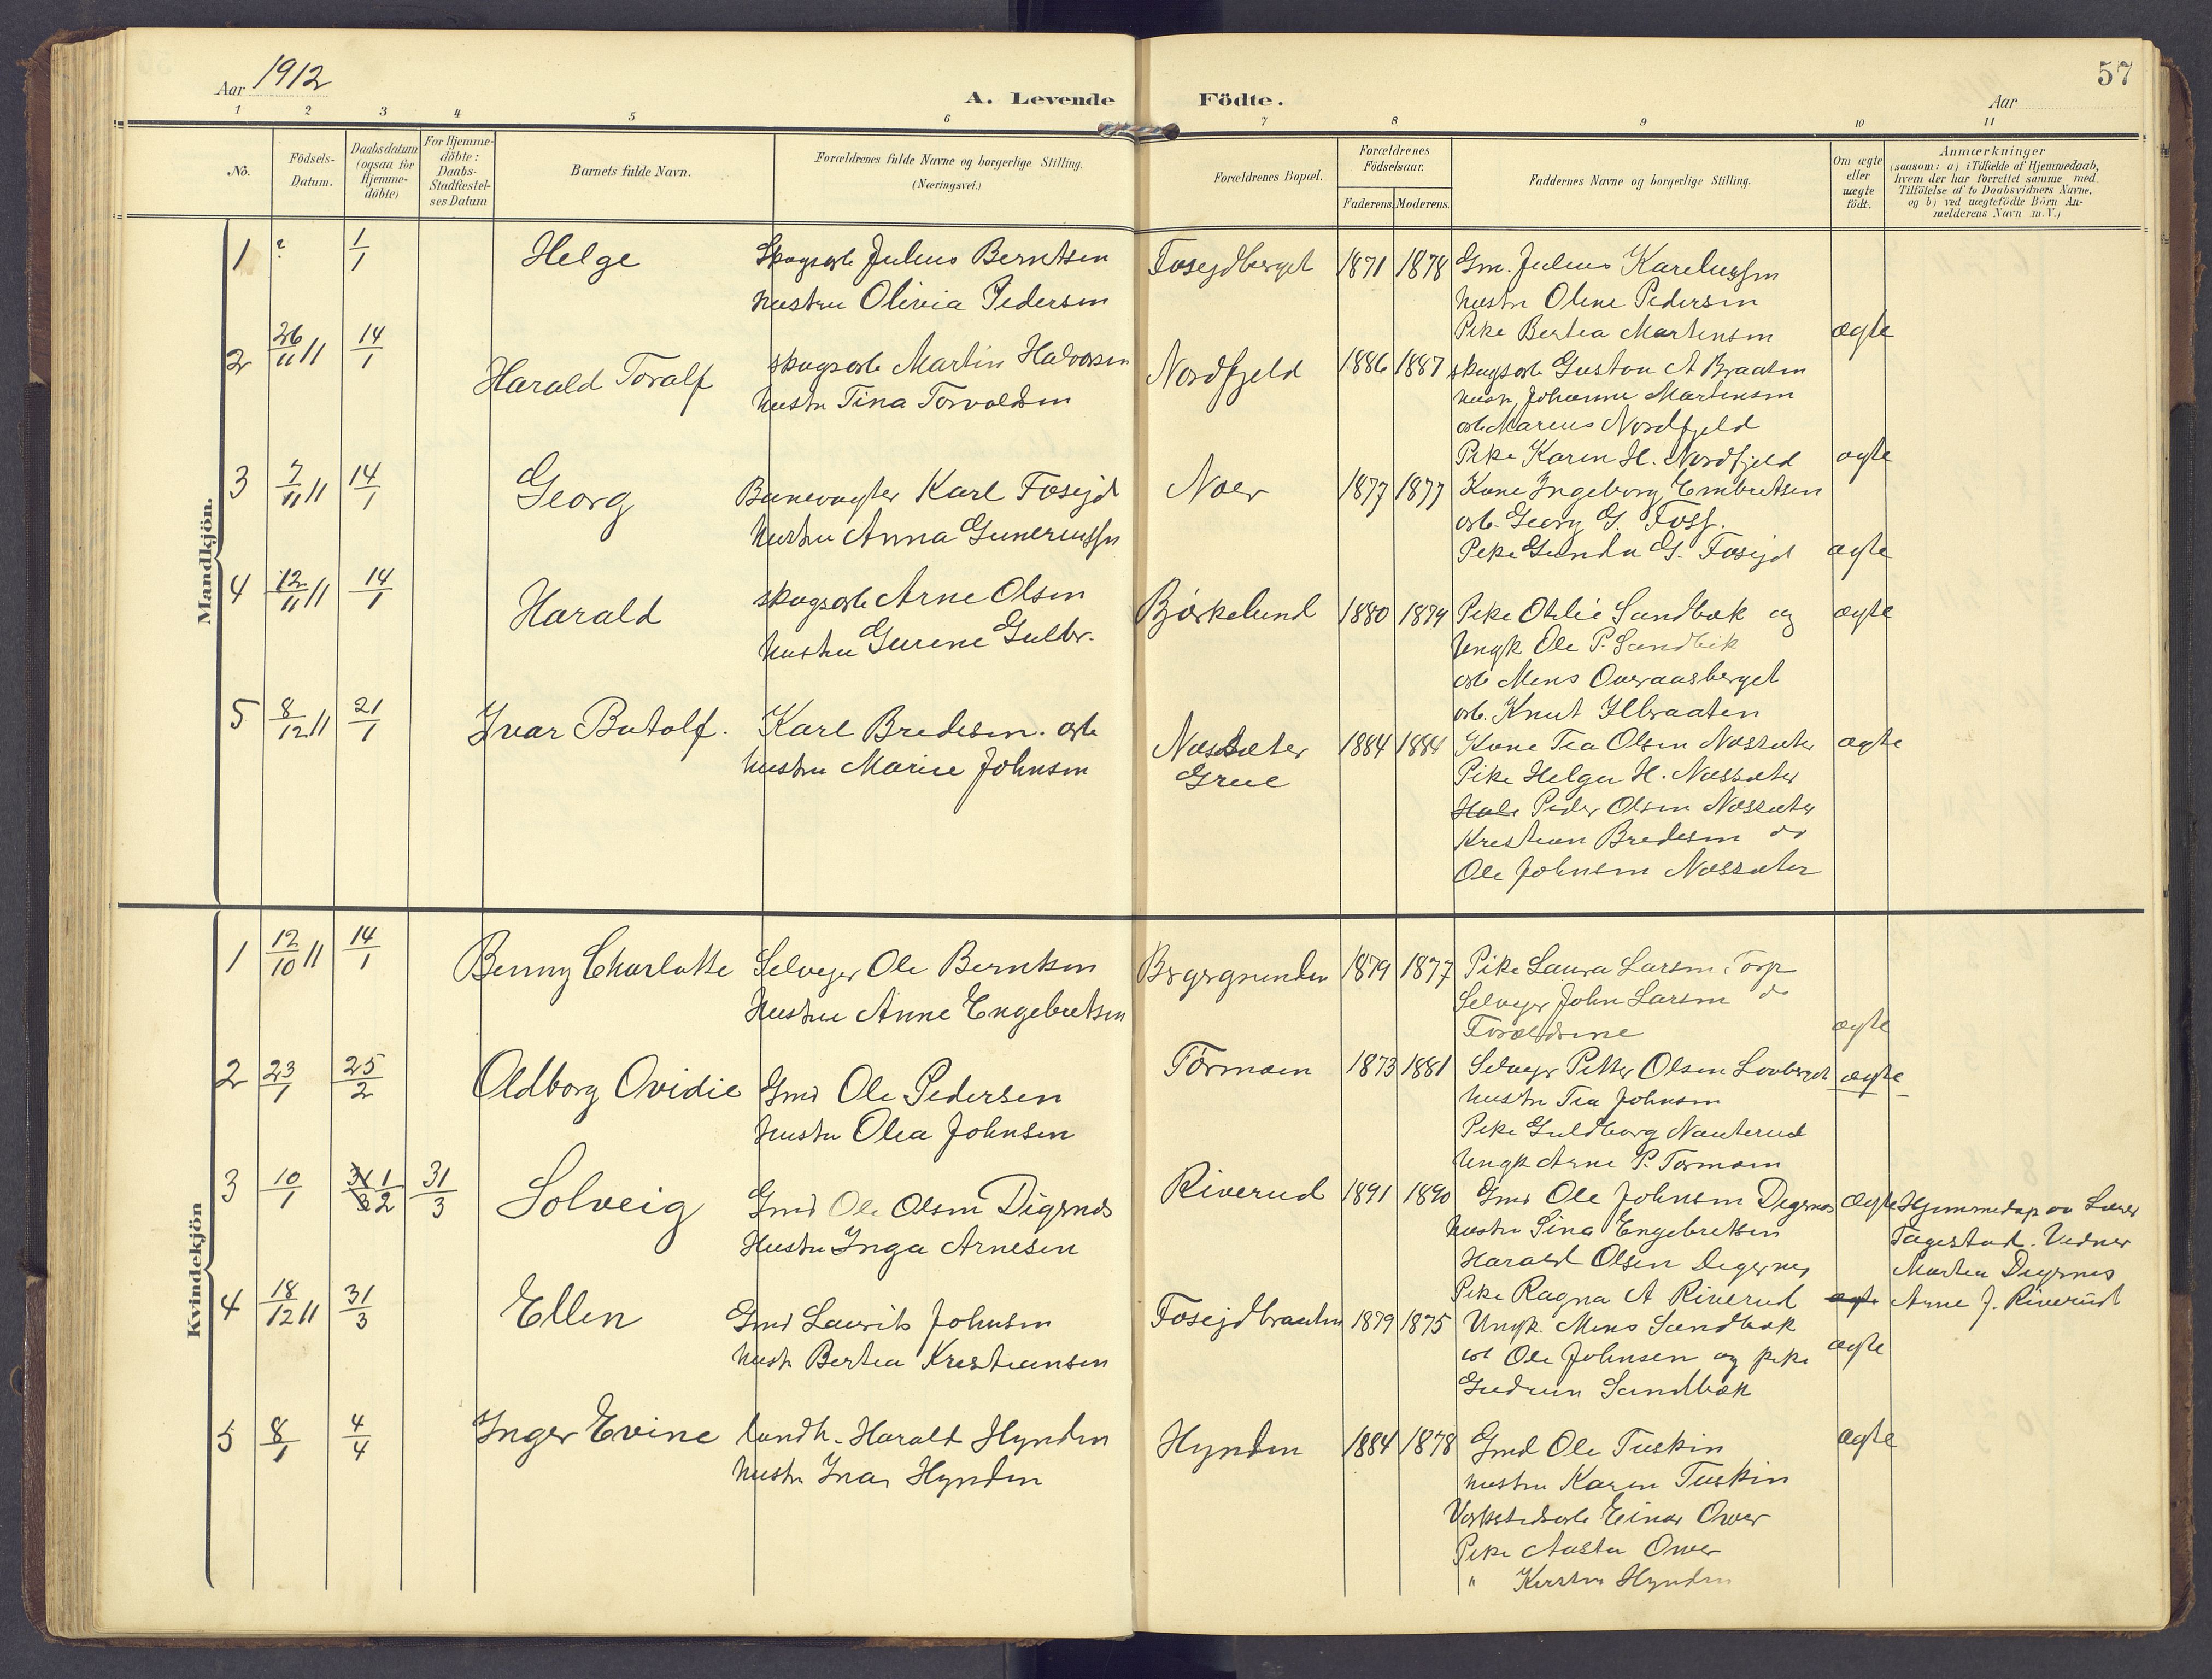 Aar 1912
A. Levende Födte.
57
Aar
1 2 3 4 5 6 7 8 9 10 11
No.
Födsels-
Datum.
Daabsdatum
(ogsaa for
Hjemme-
döbte)
For Hjemme-
döbte:
Daabs-
Stadfæstel-
ses Datum
Barnets fulde Navn.
Forældrenes fulde Navne og borgerlige Stilling.
(Næringsvei.)
Forældrenes Bopæl.
Forældrenes
Födselsaar.
Faderens. Moderens.
Faddernes Navne og borgerlige Stilling.
Om ægte
eller
uægte
födt.
Anmærkninger
(saasom: a) i Tilfælde af Hjemmedaab,
hvem der har forrettet samme med
Tilföielse af to Daabsvidners Navne,
og b) ved uægtefödte Börn An-
melderens Navn m. V.)
Mandkjön.
1 ? 1/1 Helge
Skogsarb Julius Berntsen
hustru Olivia Pedersen
Fosejdberget 1871 1878
Gm. Julius Kareliussen
hustru Oline Pedersen
Pike Bertea Martensen ægte
2 26/11 11 14/1 Harald Toralf
skogsarb Martin Halvorsen
hustru Tina Torvaldsen
Nordfjeld 1886 1887
skogsarb Gustav A Braaten
hustr. Johanne Martinsen
arb Marius Nordfjeld
Pike Karen H. Nordfjeld ægte
3 7/11 11 14/1 Georg
Banevogter Karl Fosejd
hustru Anna Guneriussen
Noer 1877 1877
Kone Ingeborg Embretsen
arb. Georg G. Foss.
Pike Gunda G. Fosejd ægte
4 12/11 11 14/1 Harald
skogsarb Arne Olsen
hustru Gurine Guldbr.
Björkelund 1880 1879
Pike Otelie Sandbæk og ægte
Ungk Ole P. Sandbæk
arb Mens Overaasberget
arb. Knut Ilbraaten
5 8/12 11 21/1 Ivar Botolf.
Karl Bredesen. arb
hustru Marie Johnsen
Næssæter
Grue
1884 1884
Kone Tea Olsen Næssæter ægte
Pike Helga H. Næssæter
Peder Olsen Næssæter
Kristian Bredesen do
Ole Johnsen Næssæter
Kvindekjön
1 12/10 11 14/1 Benny Charlotte
Selvejer Ole Berntsen
Hustru Anne Engebretsen
1879 1877
Pike Laura Larsen Torp
Selvejer John Larsen do
Forældrene ægte
2 23/1 25/2 Oldborg Ovidie
Gmd Ole Pedersen
hustru Olea Johnsen
Tormoen 1873 1881
Selvejer Petter Olsen Lovberget ægte
hustru Tea Johnsen
Pike Guldborg Nauterud
Ungk Arne P. Tormoen
3 10/1 31/3 1/2 31/3 Solveig
Gmd Ole Olsen Digernes
Hustru Inga Arnesen
Riverud 1891 1890
Gmd Ole Johnsen Digernes ægte
hustru Sina Engebretsen
Harald Olsen Degernes
Pike Ragna A Riverud
Hjemmedøp av Lærer
Tagestad. Vidner
Martea Degernes
Arne J. Riverud
4 18/12 11 31/3 Ellen
Gmd Laurits Johnsen
hustr Bertea Kristiansen
Fosejdbraaten 1879 1875
Ungk. Mens Sandbæk
arb Ole Johnsen og pike ægte
Gudrun Sandbæk
5 8/1 4/4 Inger Evine
landh. Harald Hynden
hustru Ina Hynden
Hynden 1884 1878
Gmd Ole Tuskin ægte
hustru Karen Tuskin
Verkstedsarb Einar Over
Pike Aasta Over
" Kirsten Hynden